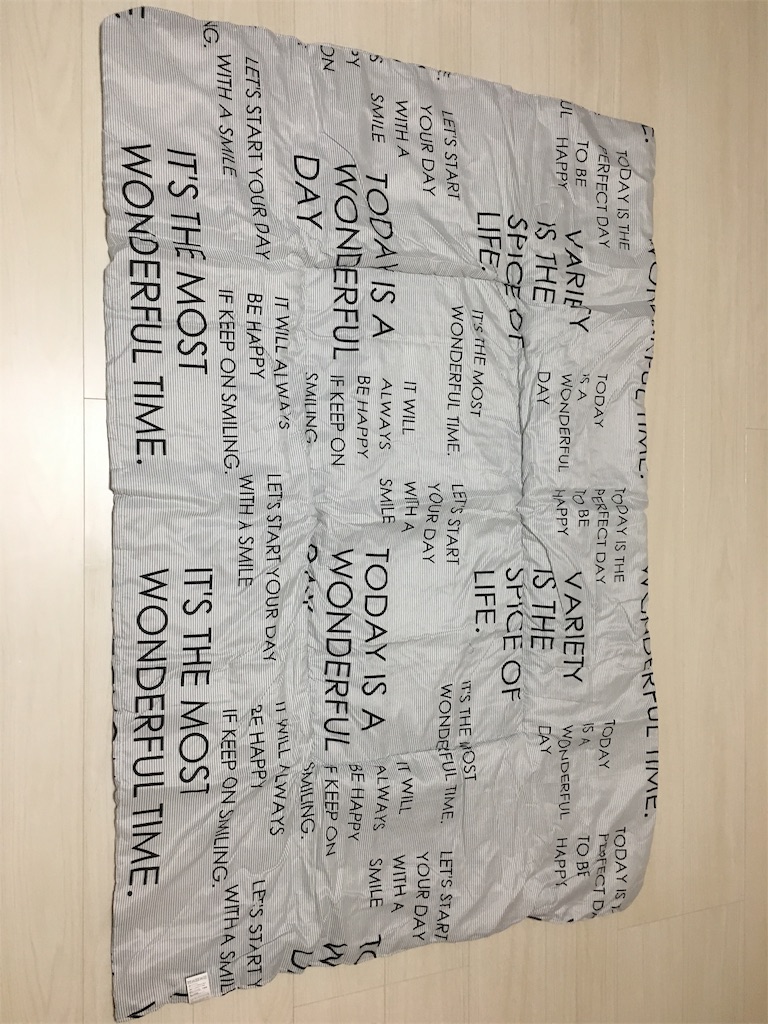 E.
WONDERFUL TIME.
WONDERFUL TIME.
TODAY IS THE
PERFECT DAY
TO BE
HAPPY
UL
TODAY
IS A
WONDERFUL
DAY
TODAY IS THE
PERFECT DAY
TO BE
HAPPY
TODAY
IS A
WONDERFUL
DAY
TODAY IS
PERFECT DA
TO BE
HAPPY
VARIETY
IS THE
SPICE OF
LIFE.
VARIETY
IS THE
SPICE OF
LIFE.
LET'S START
YOUR DAY
WITH A
SMILE
IT'S THE MOST
WONDERFUL TIME.
LET'S START
YOUR DAY
WITH A
SMILE
IT'S THE MOST
WONDERFUL TIME.
LET'S START
YOUR DAY
WITH A
SMILE
PY
ON
TODAY IS A
WONDERFUL
DAY
IT WILL
ALWAYS
BE HAPPY
IF KEEP ON
SMILING.
TODAY IS A
WONDERFUL
DAY
IT WILL
ALWAYS
BE HAPPY
F KEEP ON
SMILING.
TO
W
D
NG.
LET'S START YOUR DAY
WITH A SMILE
IT WILL ALWAYS
BE HAPPY
IF KEEP ON SMILING.
LET'S START YOUR DAY
WITH A SMILE
IT WILL ALWAYS
BE HAPPY
IF KEEP ON SMILING.
LET'S START Y
WITH A SMIL
IT'S THE MOST
WONDERFUL TIME.
IT'S THE MOST
WONDERFUL TIME.